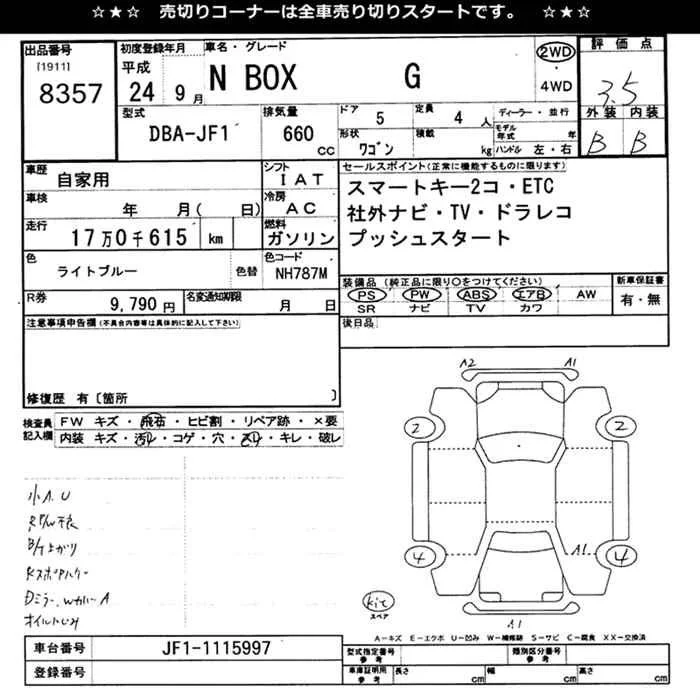 ☆★☆ 売切りコーナーは全車売り切りスタートです。 ☆★☆
出品番号 初度登録年月 車名・グレード 2WD 評価点
[1911] 平成
8357 24 9月 N BOX G ・4WD 3.5
型式 排気量 ドア 5 定員 4人 ディーラー・並行 外装 内装
DBA-JF1 660cc 形状 ワゴン 積載 kg モデル年式 年 B B
ハンドル 左・右
車歴 自家用 シフト IAT セールスポイント(正常に機能するものに限ります)
車検 年 月( 日) 冷房 AC スマートキー2コ・ETC
走行 17万0千615 km 燃料 ガソリン 社外ナビ・TV・ドラレコ
プッシュスタート
色 ライトブルー 色替 色コード NH787M
装備品(純正品に限り○をつけてください) 新車保証書
R券 9,790円 名変通知期限 月 日 PS PW ABS エアB AW 有・無
SR ナビ TV カワ
注意事項申告欄(不具合内容等は具体的に記入して下さい) 後日品
修復歴 有〔箇所 〕
検査員記入欄 FW キズ・飛石・ヒビ割・リペア跡・×要
内装 キズ・汚レ・コゲ・穴・スレ・キレ・破レ
A2 A1
2 2
小A.U
B/T上がり
4 A1 4
オイルにじみ
kit
スペア
A1
A-キズ E-エクボ U-凹み W-補修跡 S-サビ C-腐食 XX-交換済
車台番号 JF1-1115997 型式指定番号 参考 類別区分番号 参考
登録番号 車庫証明用 参考 長さ cm 幅 cm 高さ cm